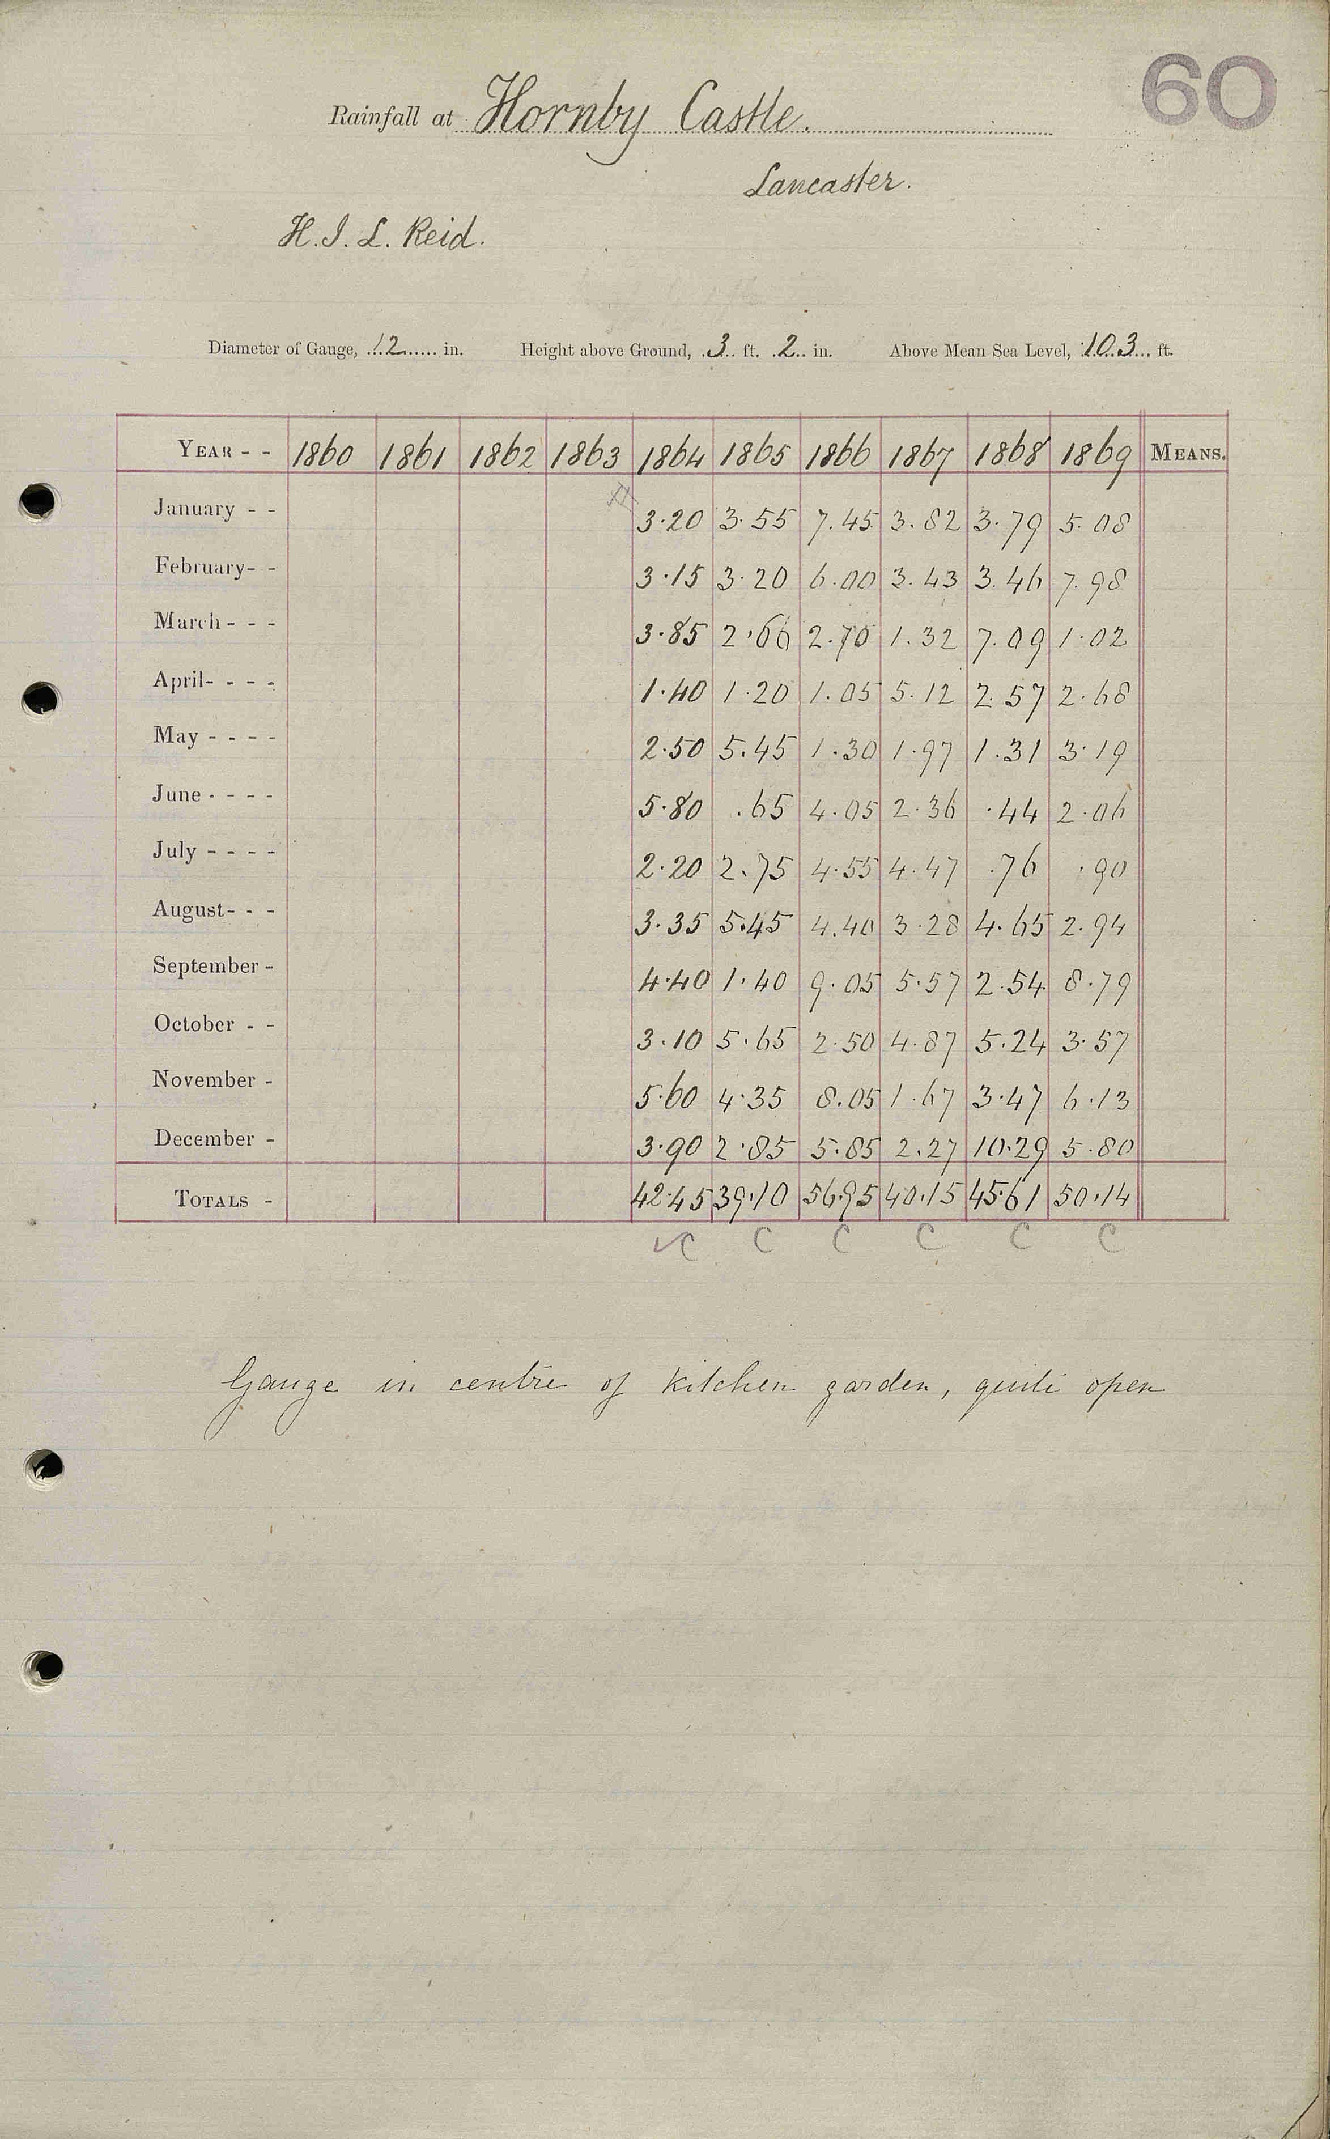 60
Rainfall at Hornby Castle.
Lancaster.
H. J. L. Reid.
Diameter of Gauge, 12 in. Height above Ground, 3 ft. 2 in. Above Mean Sea Level, 103 ft.
YEAR - - 1860 1861 1862 1863 1864 1865 1866 1867 1868 1869 MEANS.
January - - 3.20 3.55 7.45 3.82 3.79 5.08
February - - 3.15 3.20 6.00 3.43 3.46 7.98
March - - - 3.85 2.66 2.70 1.32 7.09 1.02
April - - - - 1.40 1.20 1.05 5.12 2.57 2.68
May - - - - 2.50 5.45 1.30 1.97 1.31 3.19
June - - - - 5.80 .65 4.05 2.36 .44 2.06
July - - - - 2.20 2.75 4.55 4.47 .76 .90
August - - - 3.35 5.45 4.40 3.28 4.65 2.94
September - 4.40 1.40 9.05 5.57 2.54 8.79
October - - 3.10 5.65 2.50 4.87 5.24 3.57
November - 5.60 4.35 8.05 1.67 3.47 6.13
December - 3.90 2.85 5.85 2.27 10.29 5.80
TOTALS - 42.45 39.10 56.95 40.15 45.61 50.14
✓C C C C C C
Gauge in centre of kitchen garden, quite open